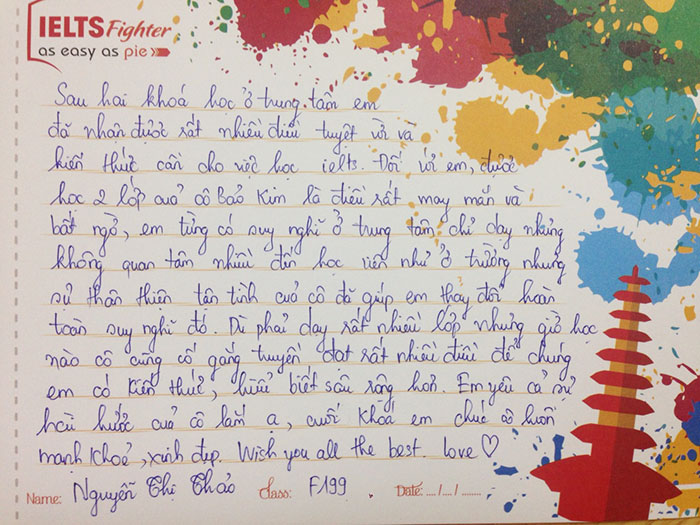 IELTS Fighter
as easy as pie
Sau hai khoá học ở trung tâm em
đã nhân được rất nhiều điều tuyệt vời và
kiến thức cần cho việc học ielts. Đối với em, được
học 2 lớp cuả cô Bảo Kim là điều rất may mắn và
bất ngờ, em từng có suy nghĩ ở trung tâm chỉ dạy nhưng
không quan tâm nhiều đến học viên như ở trường nhưng
sự thân thiên tận tình cuả cô đã giúp em thay đổi hoàn
toàn suy nghĩ đó. Dù phải dạy rất nhiều lớp nhưng giờ học
nào cô cũng cố gắng truyền đạt rất nhiều điều để chúng
em có kiến thức, hiểu biết sâu rộng hơn. Em yêu cả sự
hài hước cuả cô lắm ạ, cuối khoá em chúc cô luôn
mạnh khoẻ, xinh đẹp. Wish you all the best. love ♡
Name: Nguyễn Thị Thảo Class: F199 Date: .... / .... / ........